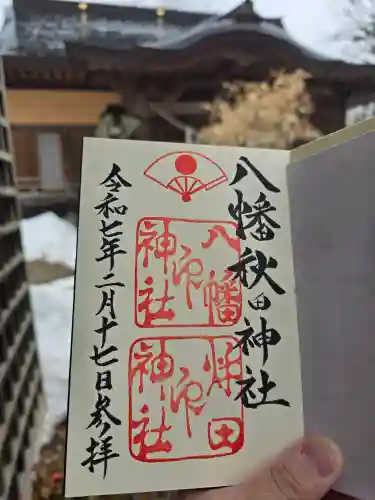 八幡秋田神社
八幡
神社
印
秋田
神社
印
令和七年二月十七日参拝